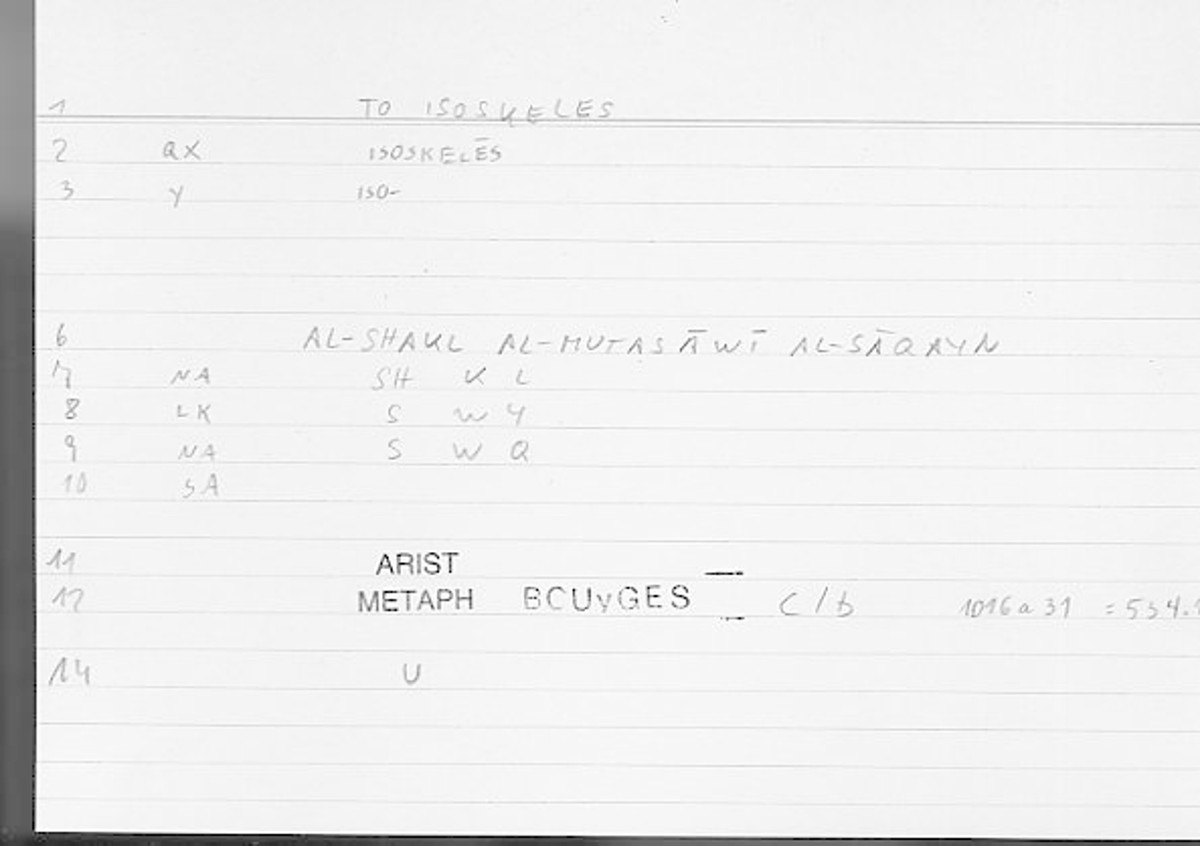 1 TO ISOSKELES
2 QX ISOSKELĒS
3 Y ISO-
6 AL-SHAKL AL-MUTASĀWĪ AL-SĀQAYN
7 NA SH K L
8 LK S W Y
9 NA S W Q
10 SA
11 ARIST —
12 METAPH BOUyGES — C/b 1016a31 = 534.
14 U